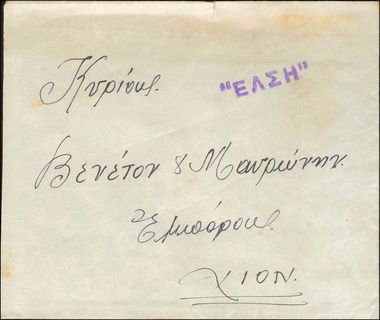 Κυρίους
"ΕΛΣΗ"
Βενέτον & Μαυριώνην
Εμπόρους
ΧΙΟΝ.